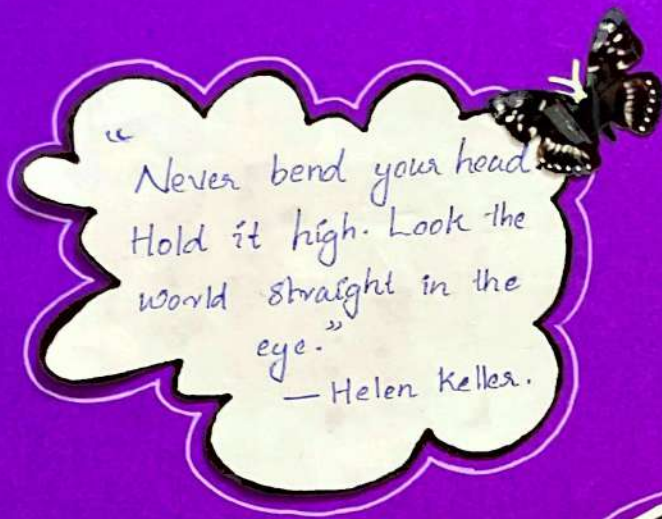 “
Never bend your head.
Hold it high. Look the
world straight in the
eye.”
— Helen Keller.